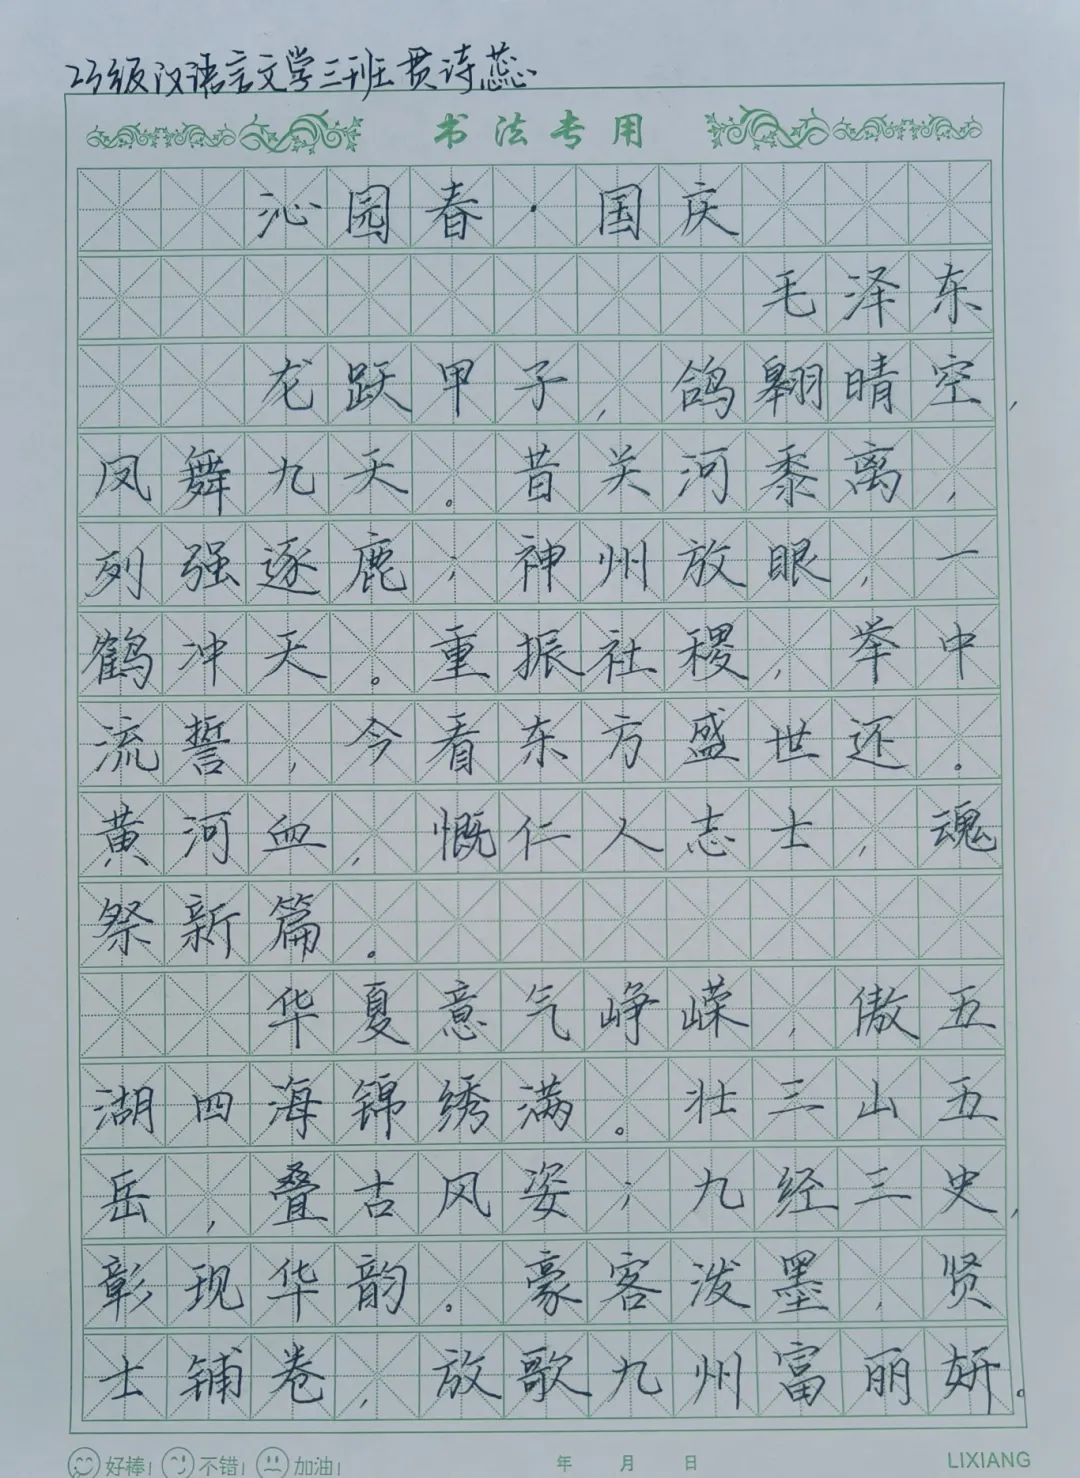 23级汉语言文学三班贯诗蕊
书法专用
沁园春·国庆
毛泽东
龙跃甲子,鸽翱晴空,
凤舞九天。昔关河黍离,
列强逐鹿;神州放眼,一
鹤冲天。重振社稷,举中
流誓,今看东方盛世还。
黄河血,慨仁人志士,魂
祭新篇。
华夏意气峥嵘,傲五
湖四海锦绣满。壮三山五
岳,叠古风姿;九经三史,
彰现华韵。豪客泼墨,贤
士铺卷,放歌九州富丽妍。
好棒! 不错! 加油! 年 月 日 LIXIANG